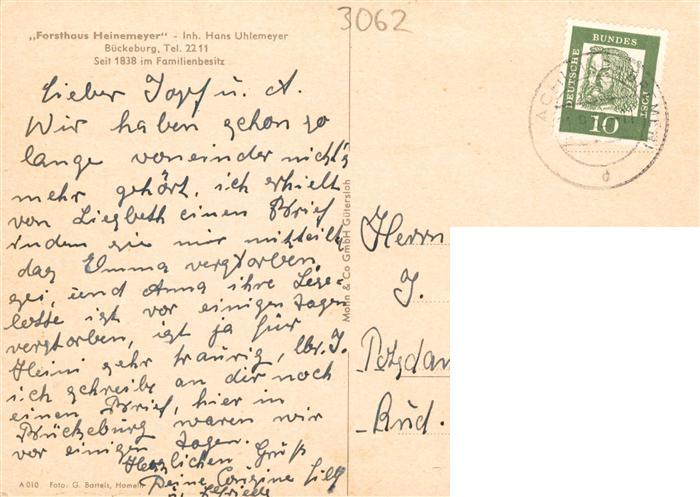 3062
„Forsthaus Heinemeyer" - Inh. Hans Uhlemeyer
Bückeburg, Tel. 2211
Seit 1838 im Familienbesitz
Lieber Josef u. A.
Wir haben schon so
lange voneinder nicht's
mehr gehört, ich erhielt
von Liesbeth einen Brief
indem sie mir mitteilt,
das Emma verstorben
sei, und Anna ihre Liese-
lotte ist vor einigen Tagen
verstorben, ist ja für
Heini sehr traurig, lbr. J.
ich schreibe an dir noch
einen Brief, hier in
Bückeburg waren wir
vor einigen Tagen.
Herzlichen Gruß
Deine Cousine
u.
A 010 Foto: G. Bartels, Hameln
Mohn & Co GmbH Gütersloh
DEUTSCHE BUNDES POST
10
d
Herrn
J.
Potsdam
-Rud.